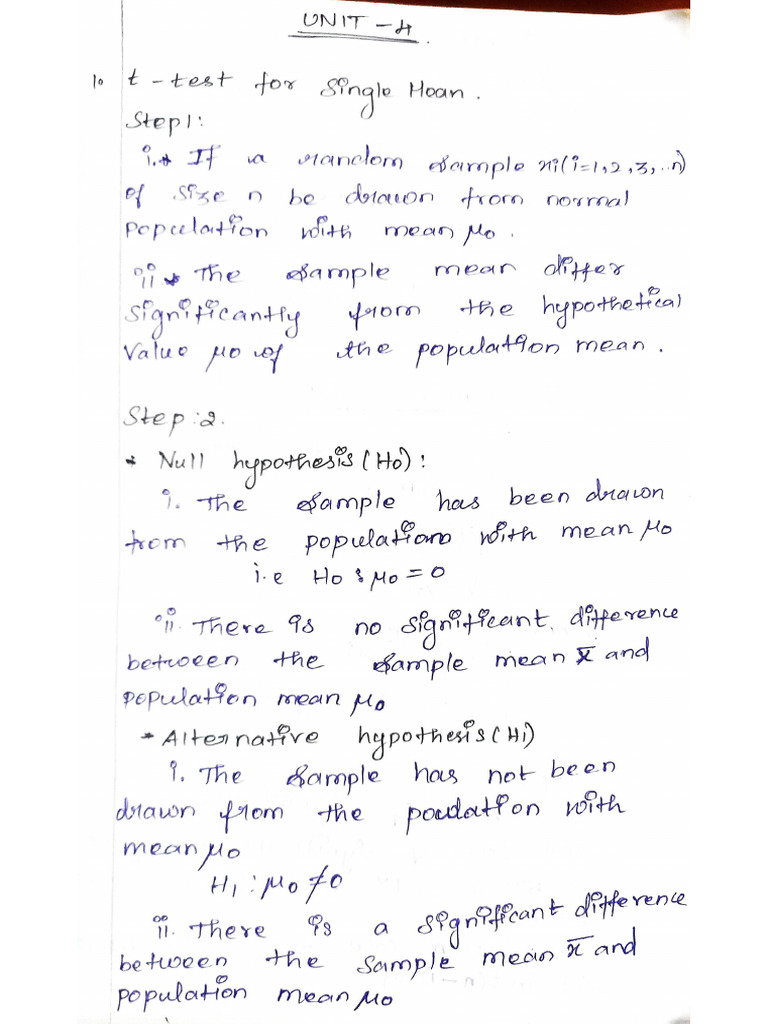 UNIT - 4.
1. t - test for Single Mean.
Step1:
i.* If a random sample xi(i=1,2,3,..n)
of size n be drawn from normal
population with mean μ0.
ii* The sample mean differ
significantly from the hypothetical
value μ0 of the population mean.
Step:2.
* Null hypothesis(H0):
i. The sample has been drawn
from the population with mean μ0
i.e H0 : μ0 = 0
ii. There is no significant difference
between the sample mean x̄ and
population mean μ0
* Alternative hypothesis(H1)
i. The sample has not been
drawn from the poulation with
mean μ0
H1 : μ0 ≠ 0
ii. There is a significant difference
between the sample mean x̄ and
population mean μ0